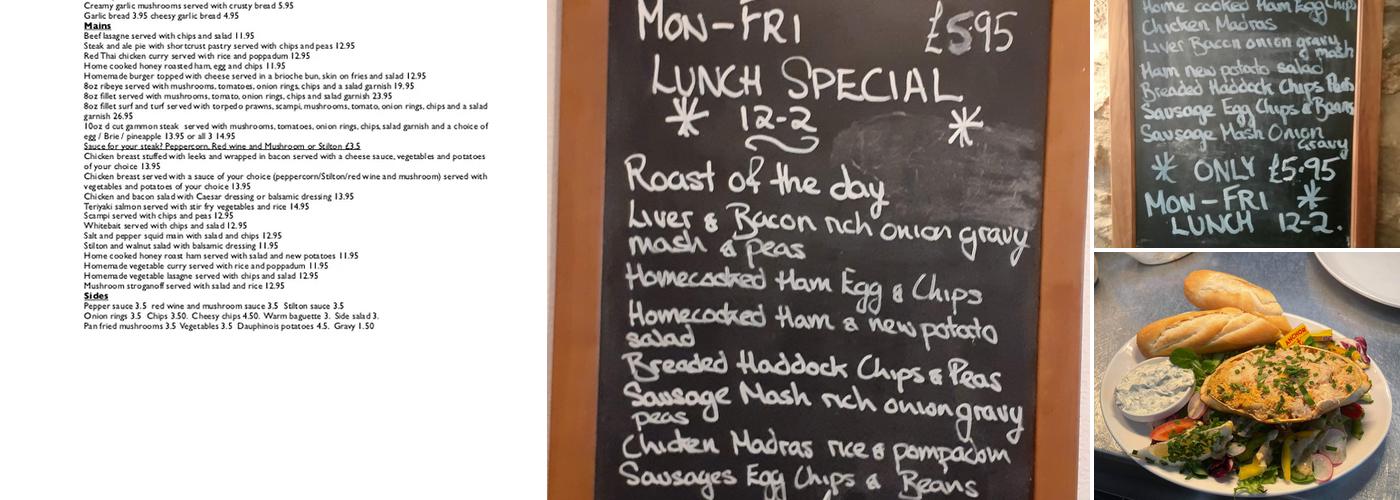 Creamy garlic mushrooms served with crusty bread 5.95
Garlic bread 3.95 cheesy garlic bread 4.95
Mains
Beef lasagne served with chips and salad 11.95
Steak and ale pie with shortcrust pastry served with chips and peas 12.95
Red Thai chicken curry served with rice and poppadum 12.95
Home cooked honey roasted ham, egg and chips 11.95
Homemade burger topped with cheese served in a brioche bun, skin on fries and salad 12.95
8oz ribeye served with mushrooms, tomatoes, onion rings, chips and a salad garnish 19.95
8oz fillet served with mushrooms, tomato, onion rings, chips and salad garnish 23.95
8oz fillet surf and turf served with torpedo prawns, scampi, mushrooms, tomato, onion rings, chips and a salad
garnish 26.95
10oz d cut gammon steak served with mushrooms, tomatoes, onion rings, chips, salad garnish and a choice of
egg / Brie / pineapple 13.95 or all 3 14.95
Sauce for your steak? Peppercorn, Red wine and Mushroom or Stilton £3.5
Chicken breast stuffed with leeks and wrapped in bacon served with a cheese sauce, vegetables and potatoes
of your choice 13.95
Chicken breast served with a sauce of your choice (peppercorn/Stilton/red wine and mushroom) served with
vegetables and potatoes of your choice 13.95
Chicken and bacon salad with Caesar dressing or balsamic dressing 13.95
Teriyaki salmon served with stir fry vegetables and rice 14.95
Scampi served with chips and peas 12.95
Whitebait served with chips and salad 12.95
Salt and pepper squid main with salad and chips 12.95
Stilton and walnut salad with balsamic dressing 11.95
Home cooked honey roast ham served with salad and new potatoes 11.95
Homemade vegetable curry served with rice and poppadum 11.95
Homemade vegetable lasagne served with chips and salad 12.95
Mushroom stroganoff served with salad and rice 12.95
Sides
Pepper sauce 3.5 red wine and mushroom sauce 3.5 Stilton sauce 3.5
Onion rings 3.5 Chips 3.50. Cheesy chips 4.50. Warm baguette 3. Side salad 3.
Pan fried mushrooms 3.5 Vegetables 3.5 Dauphinois potatoes 4.5. Gravy 1.50
MON-FRI £5.95
LUNCH SPECIAL
* 12-2 *
Roast of the day
Liver & Bacon rich onion gravy
mash & peas
Homecooked Ham Egg & Chips
Homecooked Ham & new potato
salad
Breaded Haddock Chips & Peas
Sausage Mash rich onion gravy
peas
Chicken Madras rice & pompadom
Sausages Egg Chips & Beans
Home cooked Ham Egg Chips
Chicken Madras
Liver Bacon onion gravy
mash
Ham new potato salad
Breaded Haddock Chips Peas
Sausage Egg Chips & Beans
Sausage Mash Onion
Gravy
* ONLY £5.95
MON-FRI *
LUNCH 12-2.
ANCHOR